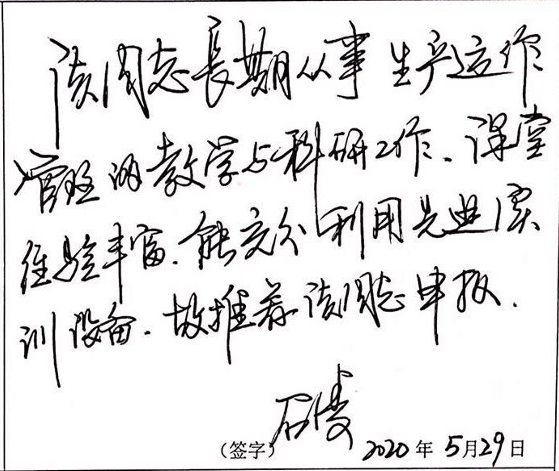 该同志长期从事生产运作
管理的教学与科研工作、课堂
经验丰富.能充分利用先进实
训设备.故推荐该同志申报.
(签字) 2020年5月29日